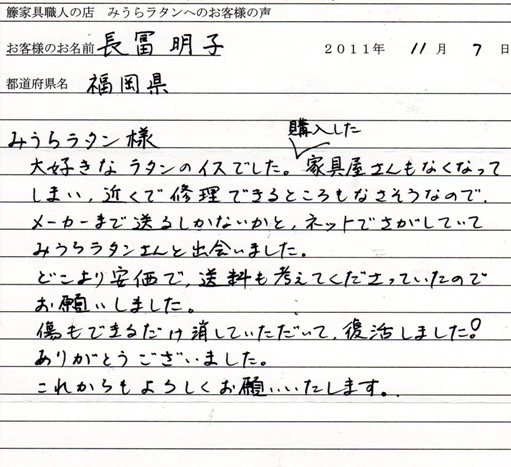 籐家具職人の店　みうらラタンへのお客様の声
お客様のお名前 長冨 明子 2011年 11月 7日
都道府県名 福岡県
みうらラタン様
購入した
大好きな ラタンのイスでした。家具屋さんもなくなって
しまい、近くで修理できるところもなさそうなので、
メーカーまで送るしかないかと、ネットでさがしていて
みうらラタンさんと出会いました。
どこより安価で、送料も考えてくださっていたので
お願いしました。
傷もできるだけ消していただいて、復活しました!
ありがとうございました。
これからもよろしくお願いいたします。